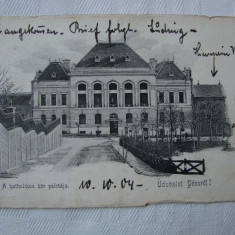 angekommen. Brief folgt. Ludwig -
A katholikus kör palotája.
10. 10. 04 -
Üdvözlet Pécsről!